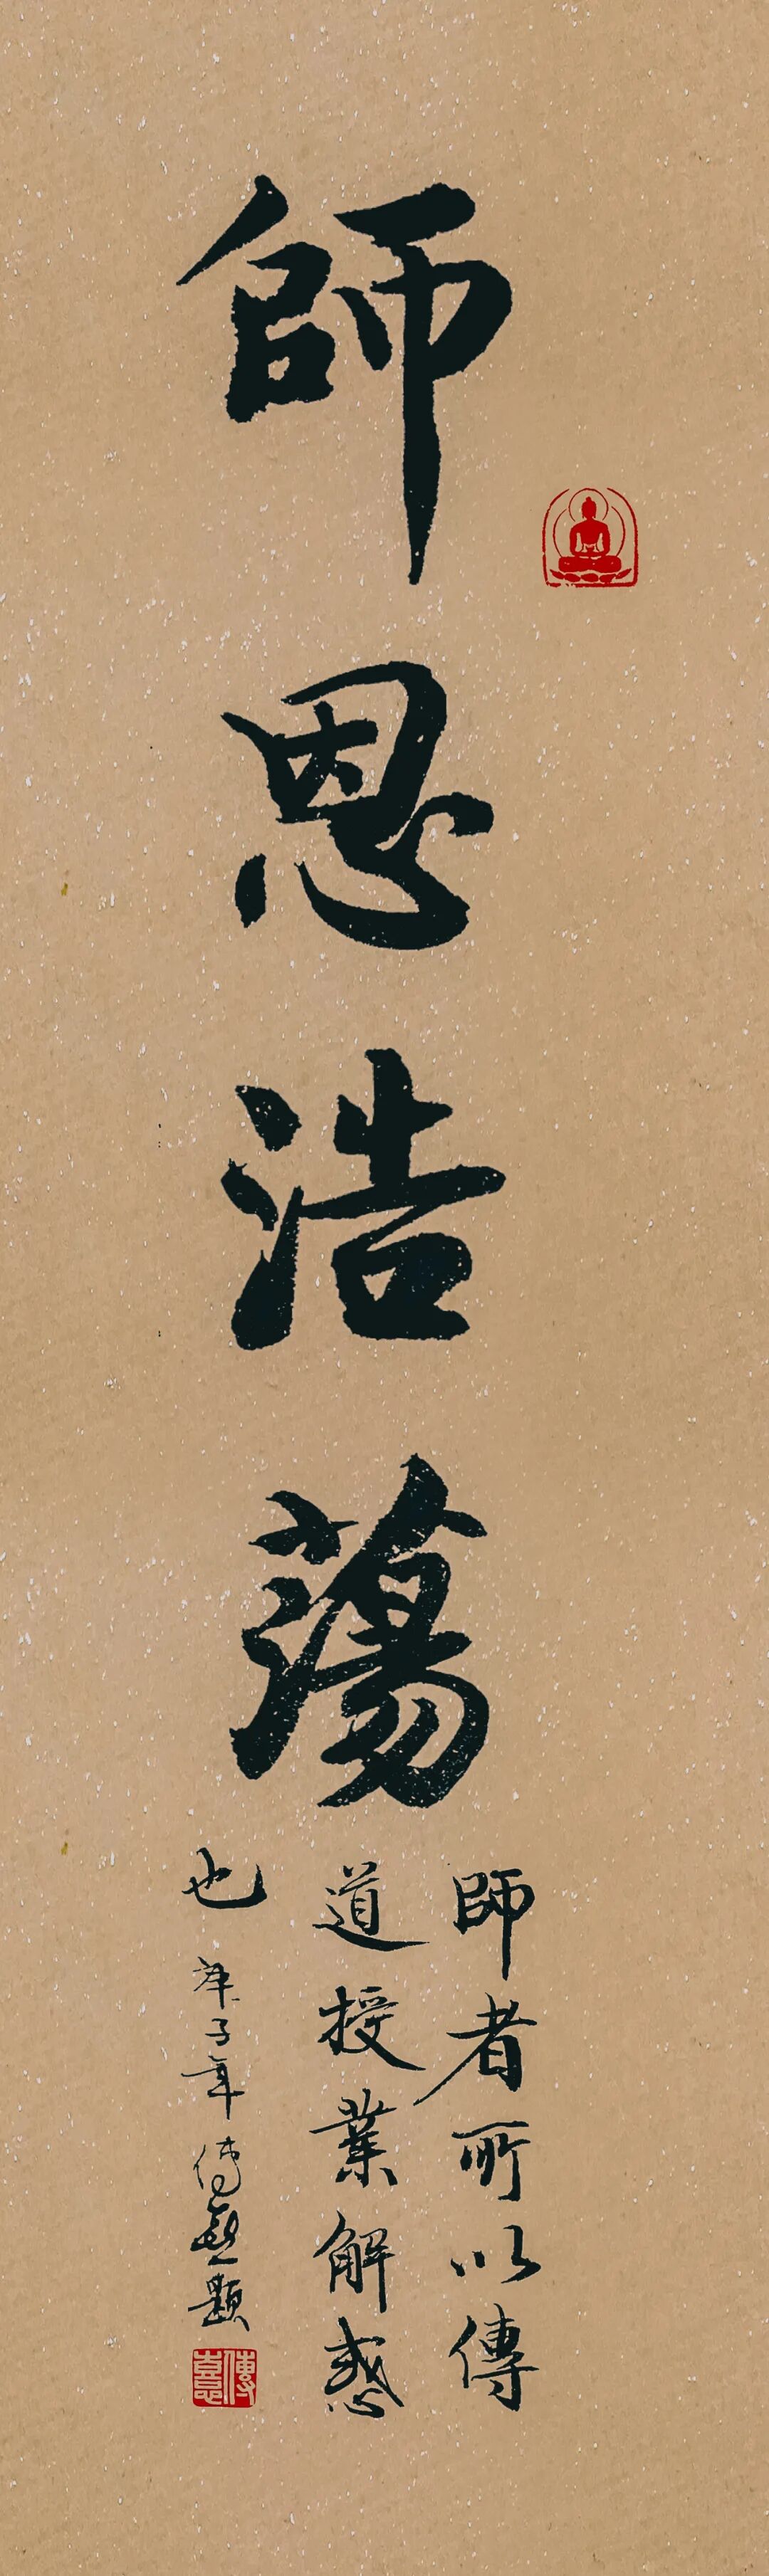 師恩浩蕩
師者所以傳
道授業解惑
也 庚子年 題